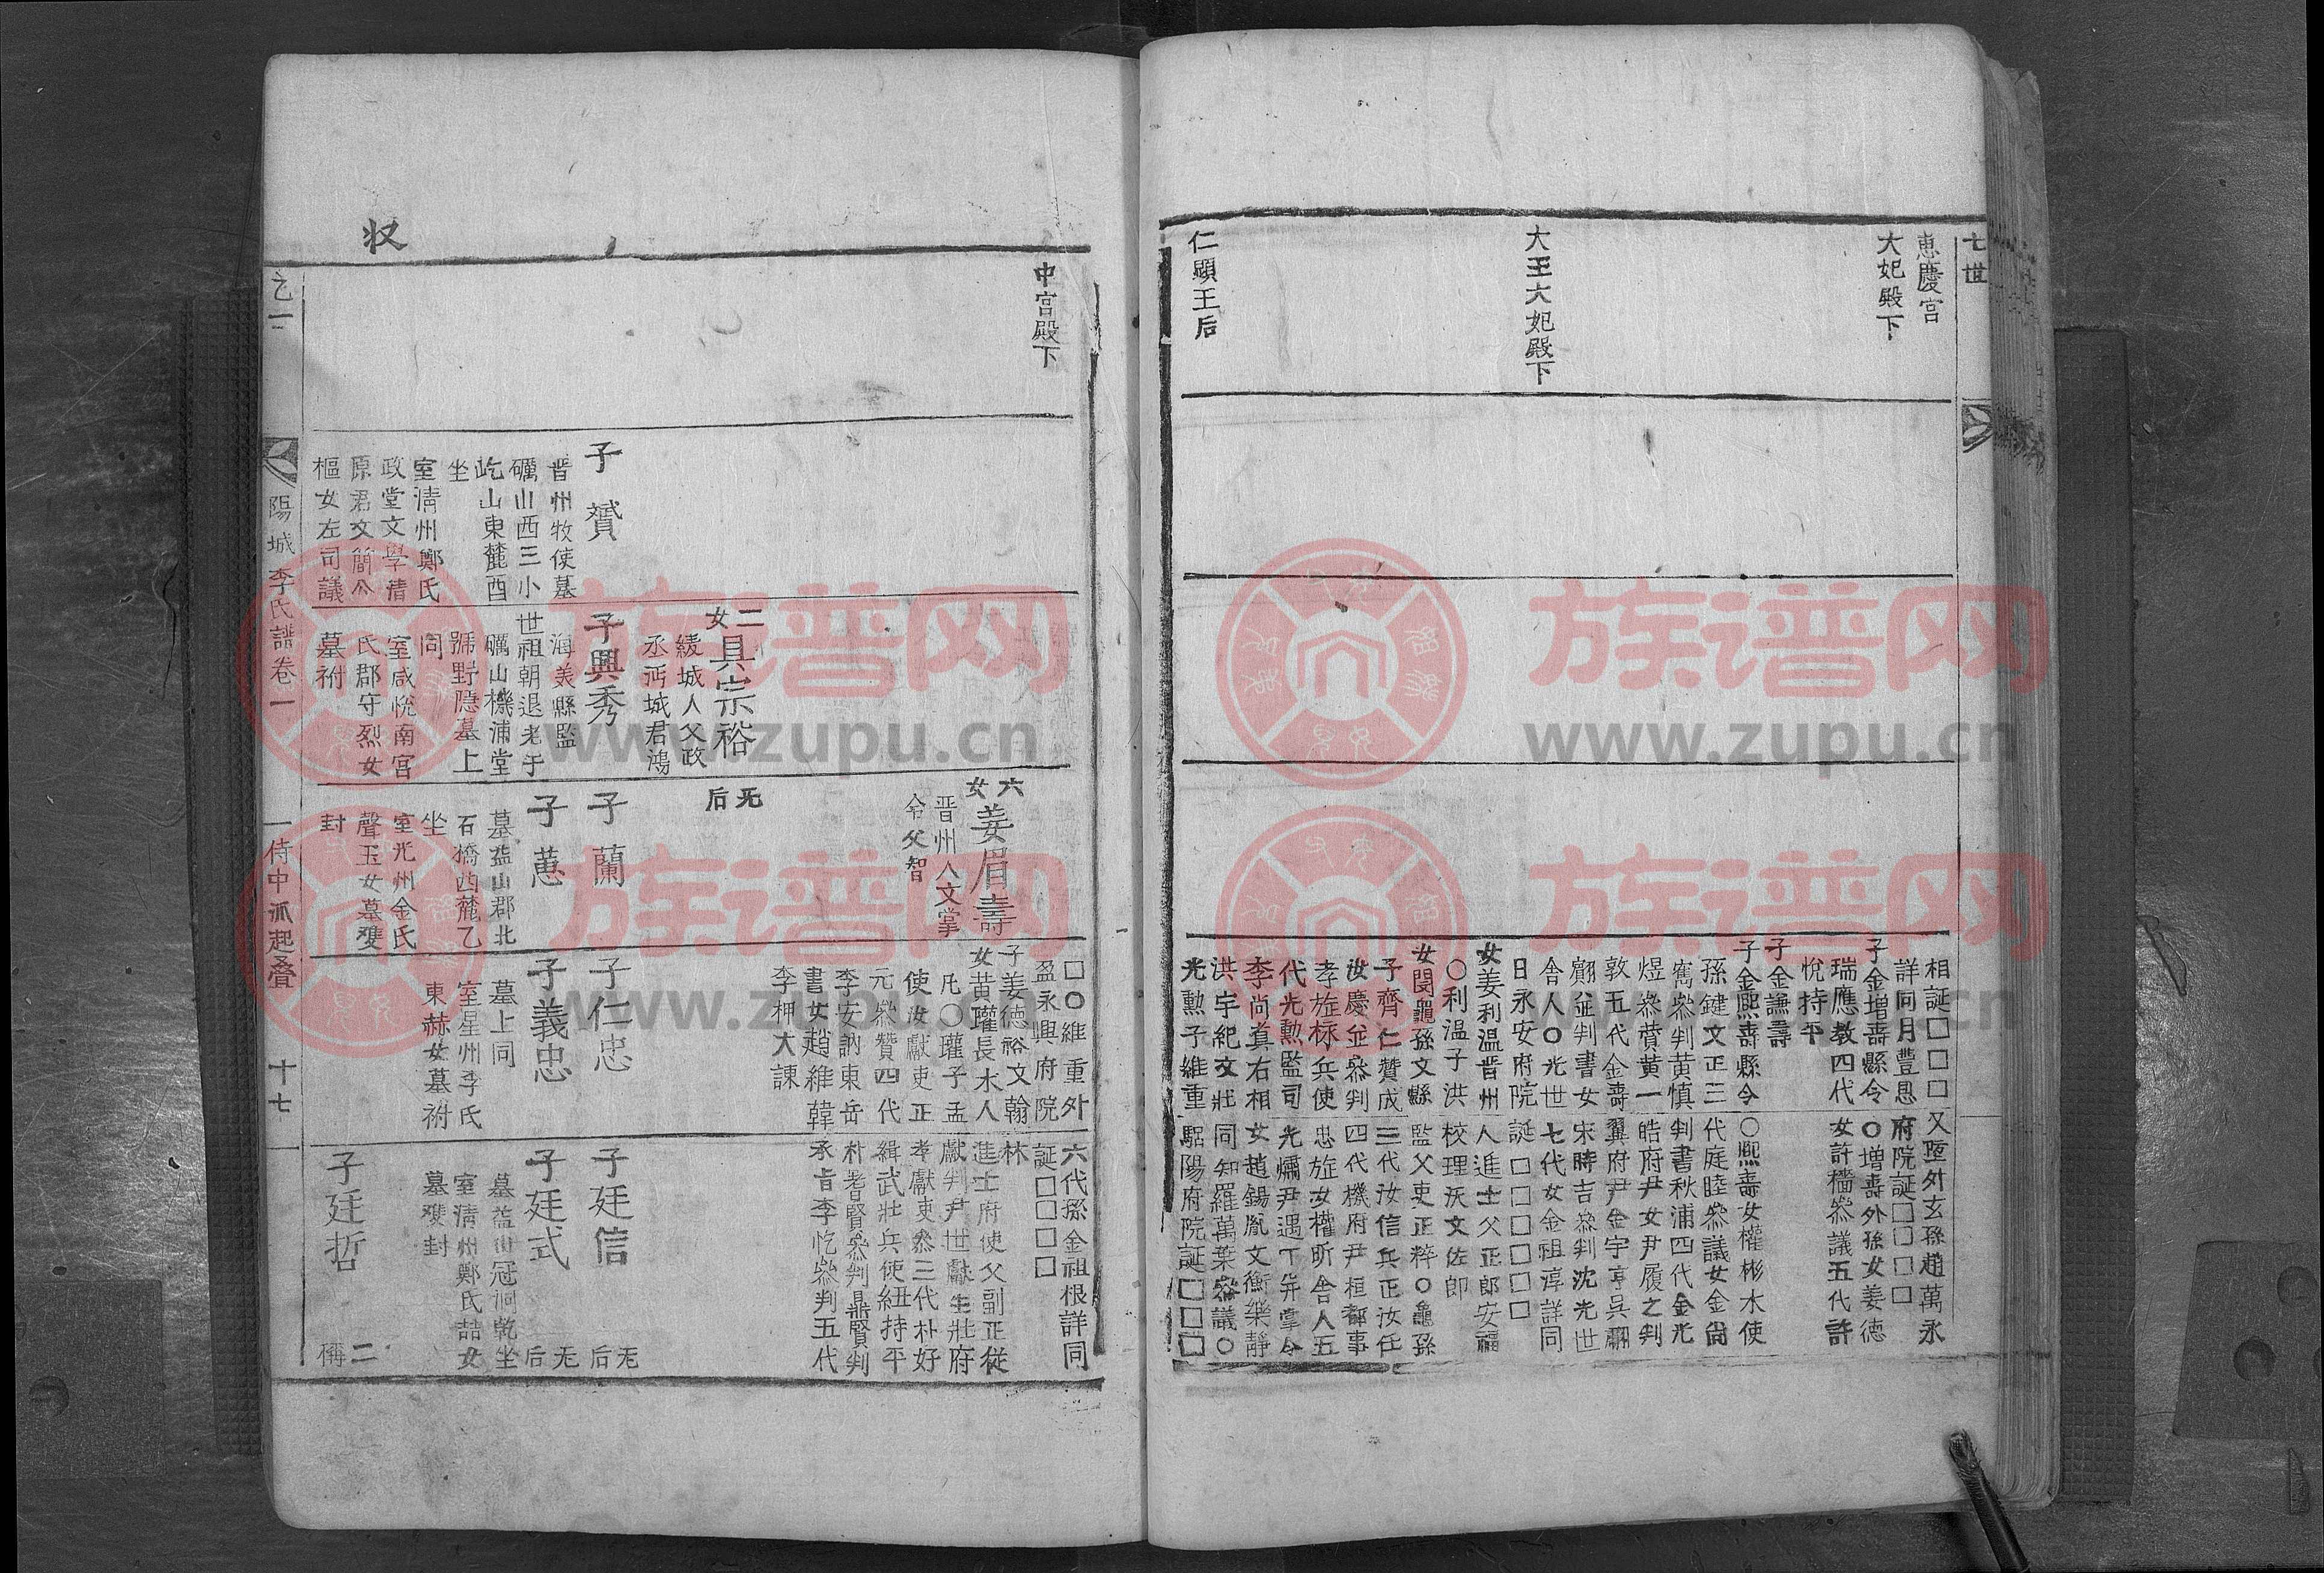 七世
惠慶宮
大妃殿下
大王大妃殿下
仁顯王后
相誕□□□
詳同月豊恩
子金增壽縣令
瑞應教四代
悅持平
子金謙壽
子金熙壽縣令
孫鍵文正三
寯叅判黃慎
煜叅賛黃一
敦五代金壽
翩並判書女
舍人○光世
日永安府院
女姜利溫晋州
○利温子洪
女閔龜孫文縣
子齊仁贊成
汝慶並叅判
孝旋秝兵使
代光勳監司
李尚眞右相
洪宇紀文壯
光勳子維重
又壐外玄孫趙萬永
府院誕□□□
○增壽外孫女姜德
女許檣叅議五代許
○熙壽女權彬水使
代庭睦叅議女金尙
判書秋浦四代金光
皓府尹女尹履之判
翼府尹金宇亨吳翮
宋時吉叅判沈光世
七代女金祖淳詳同
誕□□□□□
人進士父正郎安福
校理沃文佐郎
監父吏正粹○龜孫
三代汝信兵正汝任
四代機府尹桓都事
忠旋女權昕舍人五
光爀尹遇丁弁掌令
女趙錫胤文衡樂靜
同知羅萬葉叅議○
驪陽府院誕□□□
中宮殿下
収
子贇
晋州牧使墓
礪山西三小
屹山東麓酉
坐
室清州鄭氏
政堂文學清
原君文簡公
樞女左司議
二女具宗裕
綾城人父政
丞沔城君鴻
子興秀
海美縣監
世祖朝退老于
礪山機浦堂
號野隱墓上
同
室咸悅南宮
氏郡守烈女
墓祔
六女姜眉壽
晋州人文掌
令父智
无后
子蘭
子蕙
墓益山郡北
石橋西麓乙
坐
室光州金氏
聲玉女墓雙
封
□○維重外
盈永興府院
子姜德裕文翰
女黄瓘長水人
凡○瓘子孟
使汝獻吏正
元叅贊四代
李安訥東岳
書女趙維韓
李柙大諫
子仁忠
子義忠
墓上同
室星州李氏
東赫女墓祔
六代孫金祖根詳同
誕□□□□
林
進士府使父副正從
獻判尹世獻生壯府
孝獻吏叅三代朴好
緝武壯兵使紐持平
朴耆賢叅判鼎賢判
承旨李忔叅判五代
子廷信
无后
子廷式
无后
墓益山冠洞乾坐
室清州鄭氏喆女
墓雙封
子廷哲
二
稱
之一
陽城李氏譜卷一
侍中派起疊
十七
族谱网
www.zupu.cn
族谱网
www.zupu.cn
族谱网
www.zupu.cn
族谱网
www.zupu.cn